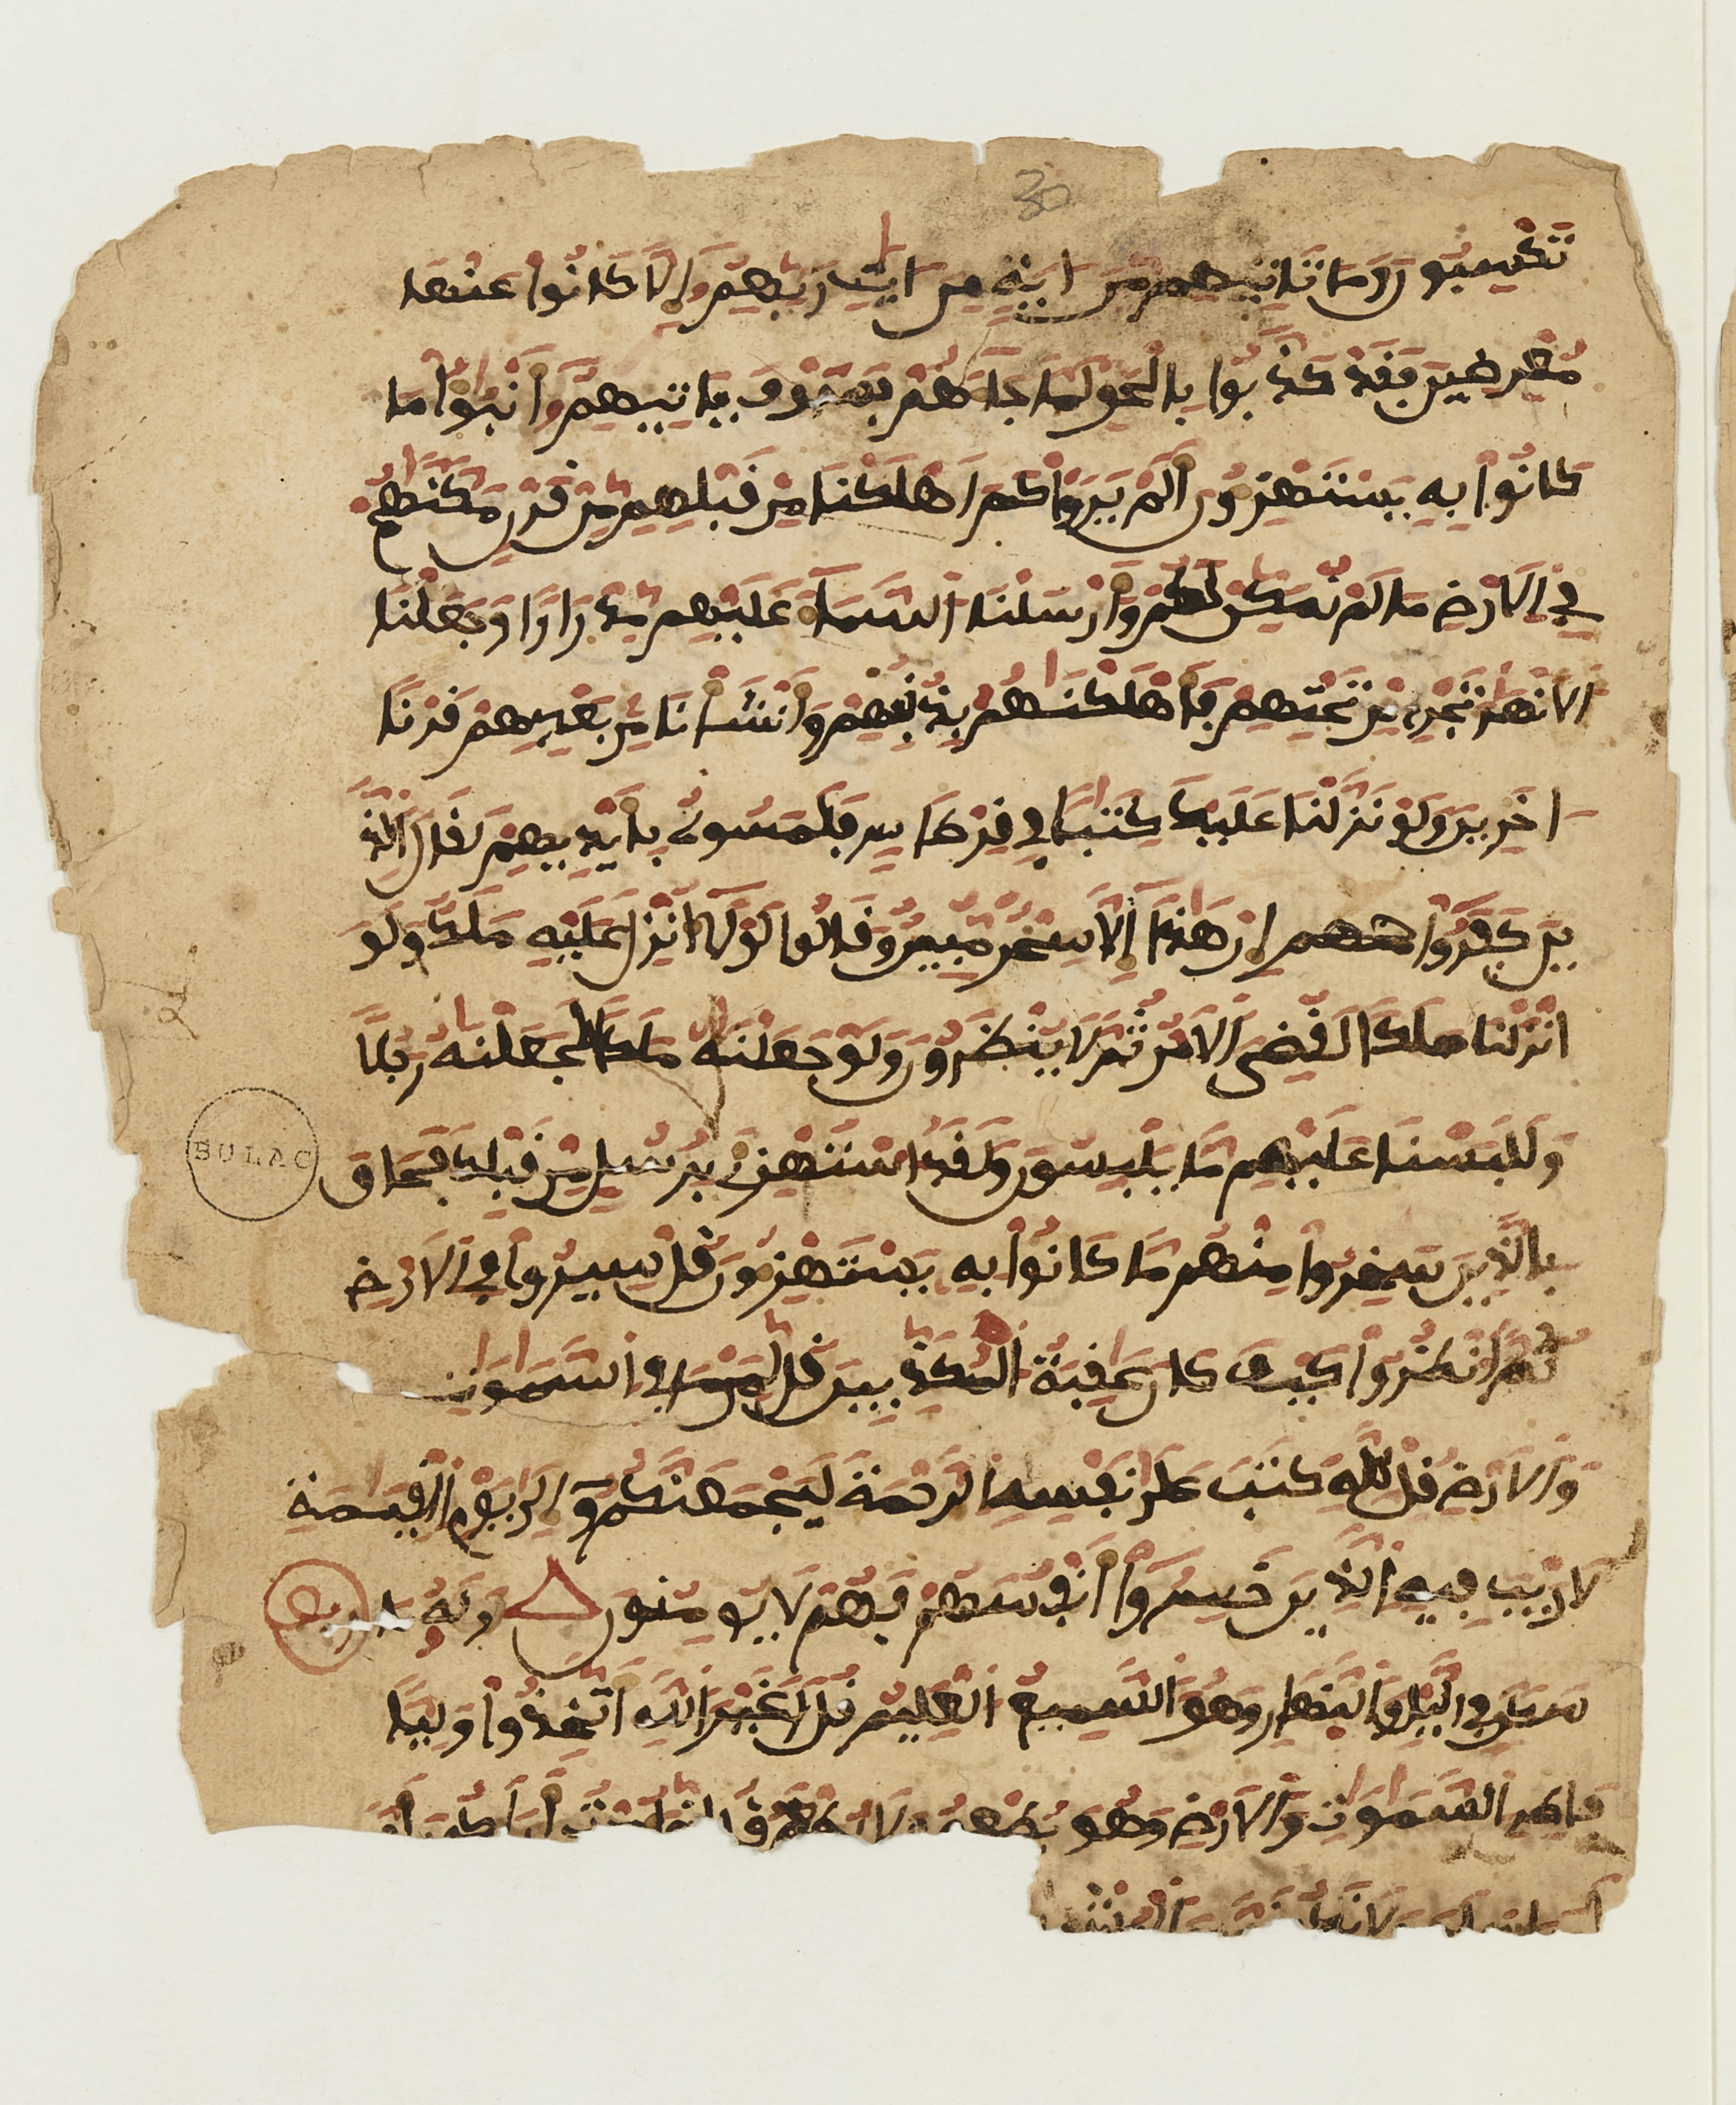 30
تكسبون وما تاتيهم من اية من ايت ربهم الا كانوا عنها
معرضين فقد كذبوا بالحق لما جاهم فسوف ياتيهم انبوا ما
كانوا به يستهزون الم يروا كم اهلكنا من قبلهم من قرن مكنهم
في الارض ما لم نمكن لكم وارسلنا السما عليهم مدرارا وجعلنا
الانهر تجري من تحتهم فاهلكنهم بذنوبهم وانشانا من بعدهم قرنا
اخرين ولو نزلنا عليك كتبا في قرطاس فلمسوه بايديهم لقال الذ
ين كفروا منهم ان هذا الا سحر مبين وقالوا لولا انزل عليه ملك ولو
انزلنا ملكا لقضي الامر ثم لا ينظرون ولو جعلنه ملكا لجعلنه رجلا
وللبسنا عليهم ما يلبسون ولقد استهزي برسل من قبلك فحاق
بالذين سخروا منهم ما كانوا به يستهزون قل سيروا في الارض
ثم انظروا كيف كان عقبة المكذبين قل لمن ما في السموت
والارض قل لله كتب على نفسه الرحمة ليجمعنكم الى يوم القيمة
لا ريب فيه الذين خسروا انفسهم فهم لا يومنون وله ما
سكن في اليل والنهار وهو السميع العليم قل اغير الله اتخذ وليا
فاطر السموت والارض وهو يطعم ولا يطعم قل اني امرت ان اكون
BULAC